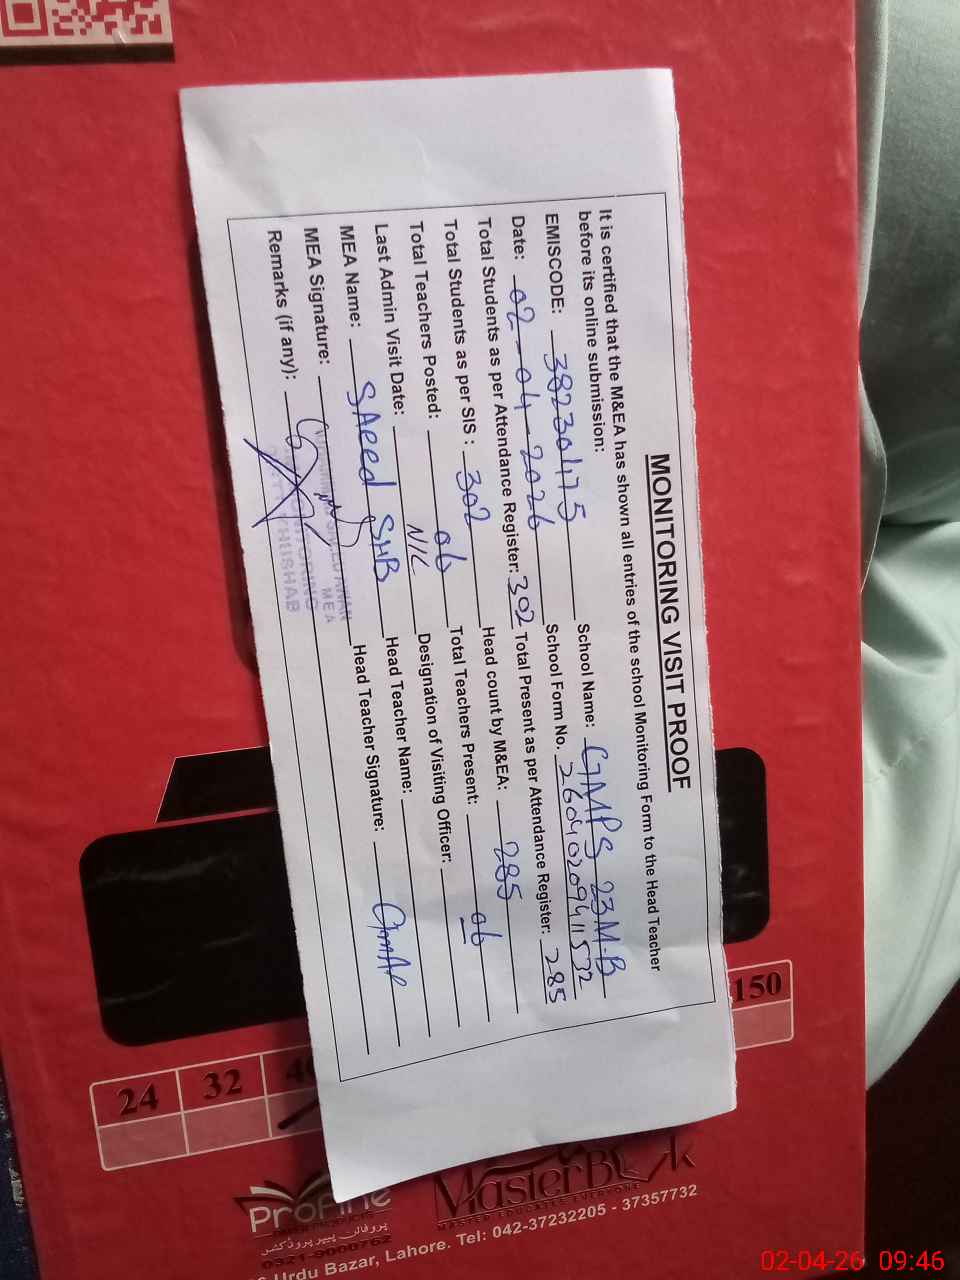 MONITORING VISIT PROOF
It is certified that the M&EA has shown all entries of the school Monitoring Form to the Head Teacher
before its online submission:
EMISCODE: 38230175 School Name: GMPS 23M-B
Date: 02-04-2026 School Form No. 26040209411532
Total Students as per Attendance Register: 302 Total Present as per Attendance Register: 285
Total Students as per SIS : 302 Head count by M&EA: 285
Total Teachers Posted: 06 Total Teachers Present: 06
Last Admin Visit Date: NIL Designation of Visiting Officer:
MEA Name: SAeed Head Teacher Name:
MEA Signature: Head Teacher Signature:
Remarks (if any):
AWAN
MEA
MONITORING
KHUSHAB
150
24 32
ProFine
MasterB
MASTER EDUCATES EVERYONE
پروفائن پیپر پروڈکٹس
0321-9000762
Urdu Bazar, Lahore. Tel: 042-37232205 - 37357732
02-04-26 09:46